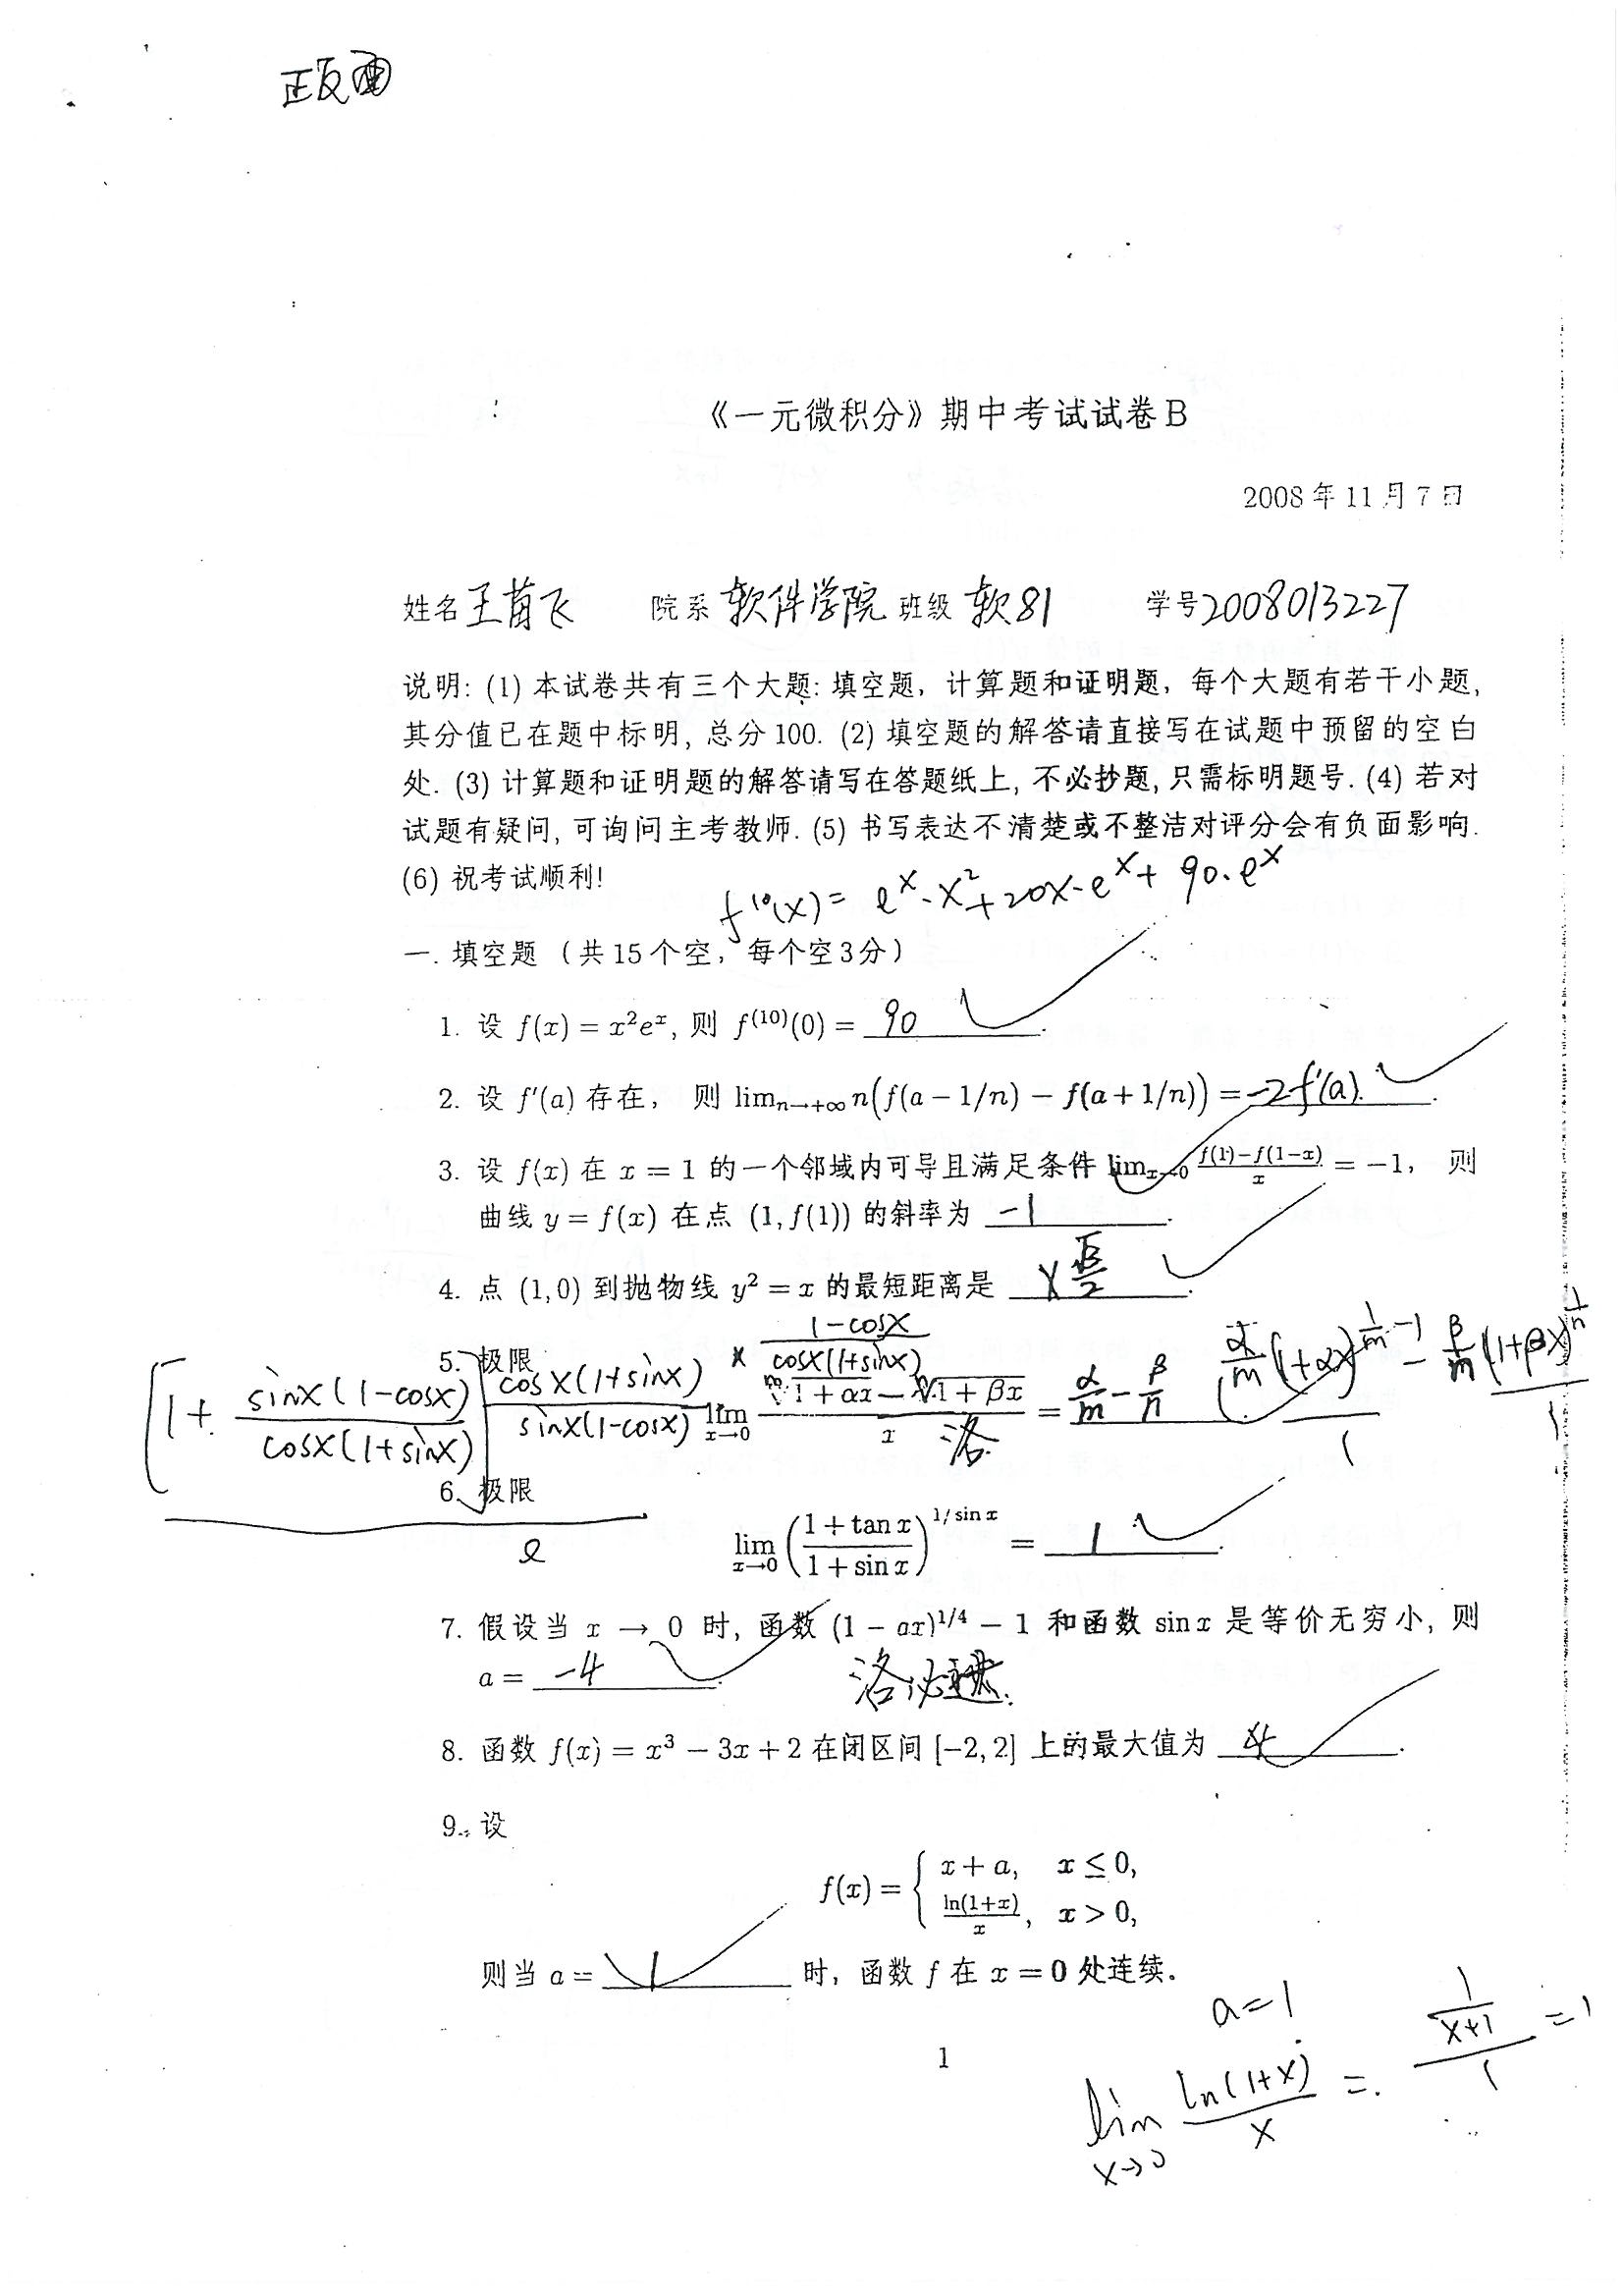 正反面
《一元微积分》期中考试试卷B
2008年11月7日
姓名 王苗飞 院系 软件学院 班级 软81 学号 2008013227
说明: (1) 本试卷共有三个大题: 填空题, 计算题和证明题, 每个大题有若干小题,
其分值已在题中标明, 总分 100. (2) 填空题的解答请直接写在试题中预留的空白
处. (3) 计算题和证明题的解答请写在答题纸上, 不必抄题, 只需标明题号. (4) 若对
试题有疑问, 可询问主考教师. (5) 书写表达不清楚或不整洁对评分会有负面影响.
(6) 祝考试顺利!
f¹⁰(x) = eˣ·x²+20x·eˣ+90·eˣ
一. 填空题 (共15个空, 每个空3分)
1. 设 f(x) = x²eˣ, 则 f⁽¹⁰⁾(0) = 90.
2. 设 f'(a) 存在, 则 limₙ→+∞ n(f(a − 1/n) − f(a + 1/n)) = -2f'(a).
3. 设 f(x) 在 x = 1 的一个邻域内可导且满足条件 limₓ→0 (f(1)−f(1−x))/x = −1, 则
曲线 y = f(x) 在点 (1, f(1)) 的斜率为 -1.
4. 点 (1,0) 到抛物线 y² = x 的最短距离是 √3/2.
5. 极限
lim x→0 (ᵐ√(1 + αx) − ⁿ√(1 + βx))/x = α/m − β/n
α/m (1+αx)^(1/m −1) − β/m (1+βx)^(1/n)
1
1
洛
[1+ sinx(1-cosx)/cosx(1+sinx)] cosx(1+sinx)/sinx(1-cosx) × (1-cosx)/cosx(1+sinx)
e
6. 极限
lim x→0 ((1 + tan x)/(1 + sin x))^(1/sin x) = 1.
7. 假设当 x → 0 时, 函数 (1 − ax)^(1/4) − 1 和函数 sin x 是等价无穷小, 则
a = -4.
洛必达.
8. 函数 f(x) = x³ − 3x + 2 在闭区间 [−2, 2] 上的最大值为 4.
9. 设
f(x) = { x + a, x ≤ 0,
ln(1+x)/x, x > 0,
则当 a = 1 时, 函数 f 在 x = 0 处连续.
a=1
lim x→0 ln(1+x)/x = (1/(x+1))/1 = 1
1